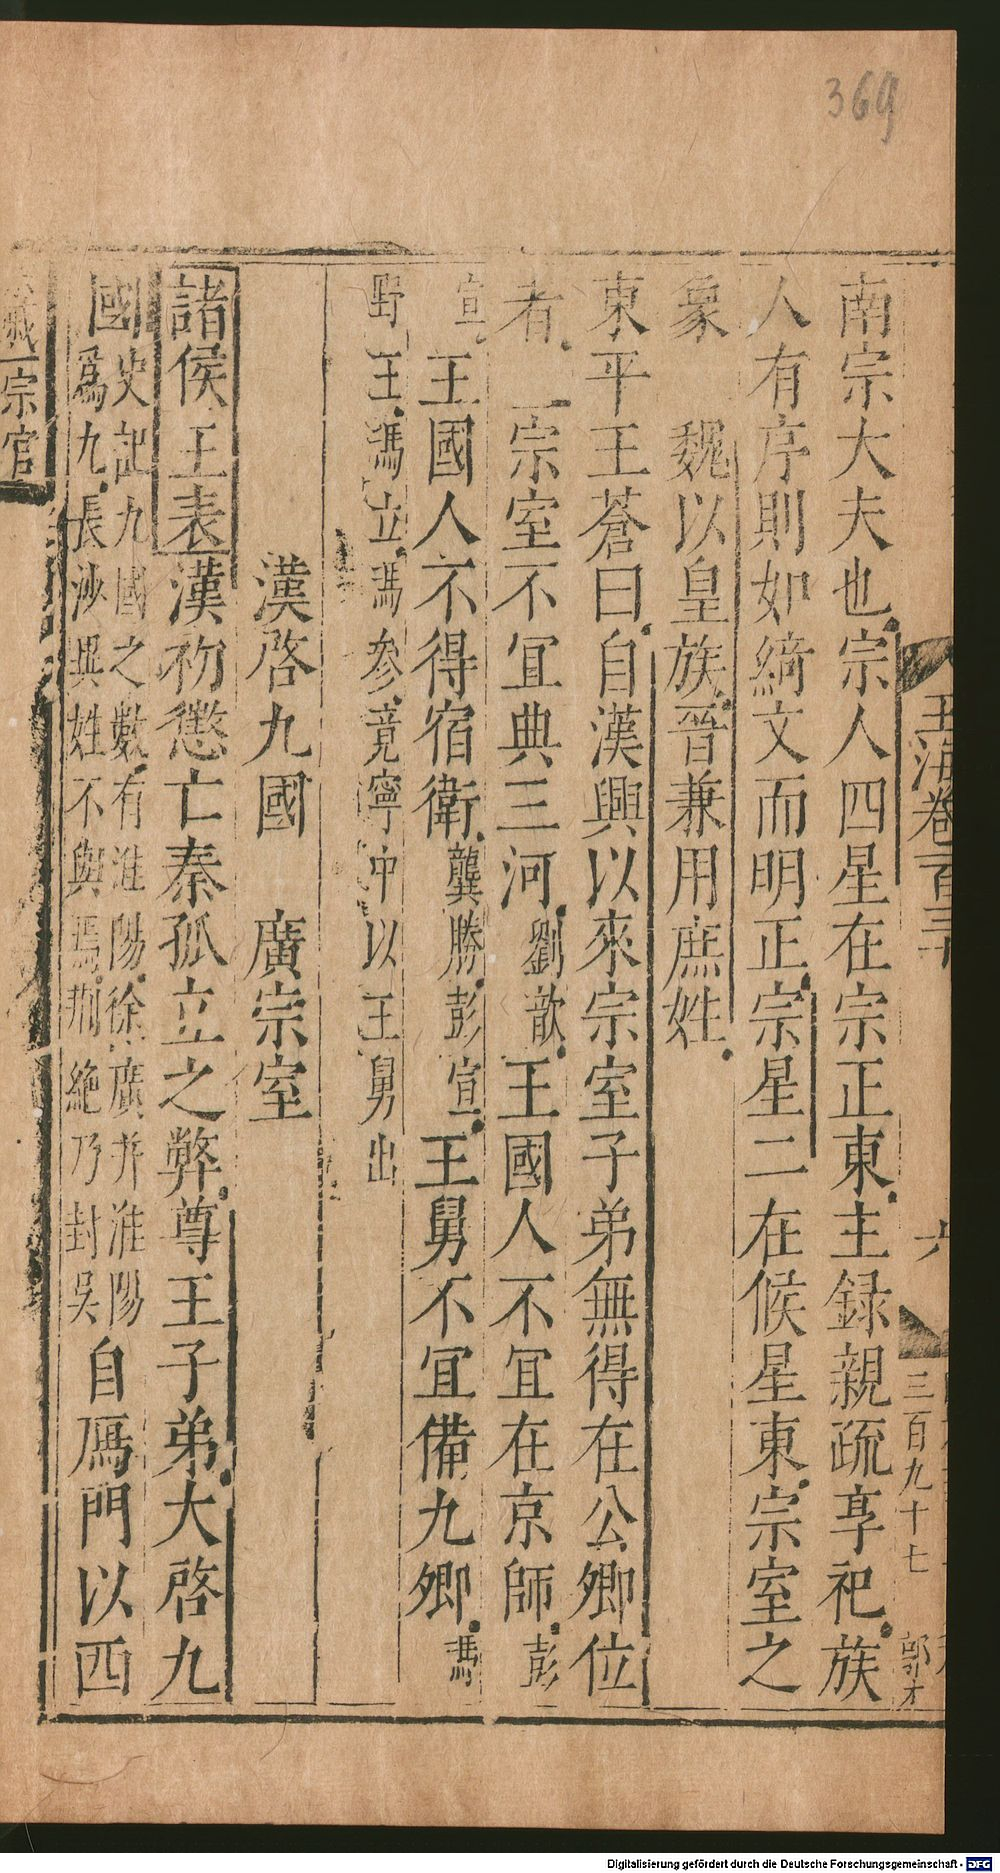 369
玉海卷百三十
六
三百九十七
郭才
南宗大夫也宗人四星在宗正東主錄親疏享祀族
人有序則如綺文而明正宗星二在候星東宗室之
象　魏以皇族晉兼用庶姓
東平王蒼曰自漢興以來宗室子弟無得在公卿位
者　一宗室不宜典三河劉歆王國人不宜在京師彭
宣王國人不得宿衛龔勝彭宣王舅不宜備九卿馮
野王馮立馮參竟寧中以王舅出
漢啓九國　廣宗室
諸侯王表漢初懲亡秦孤立之弊尊王子弟大啓九
國史記九國之數有淮陽徐廣并淮陽
爲九長沙異姓不與焉荊絶乃封吳自鴈門以西
宗官
Digitalisierung gefördert durch die Deutsche Forschungsgemeinschaft - DFG